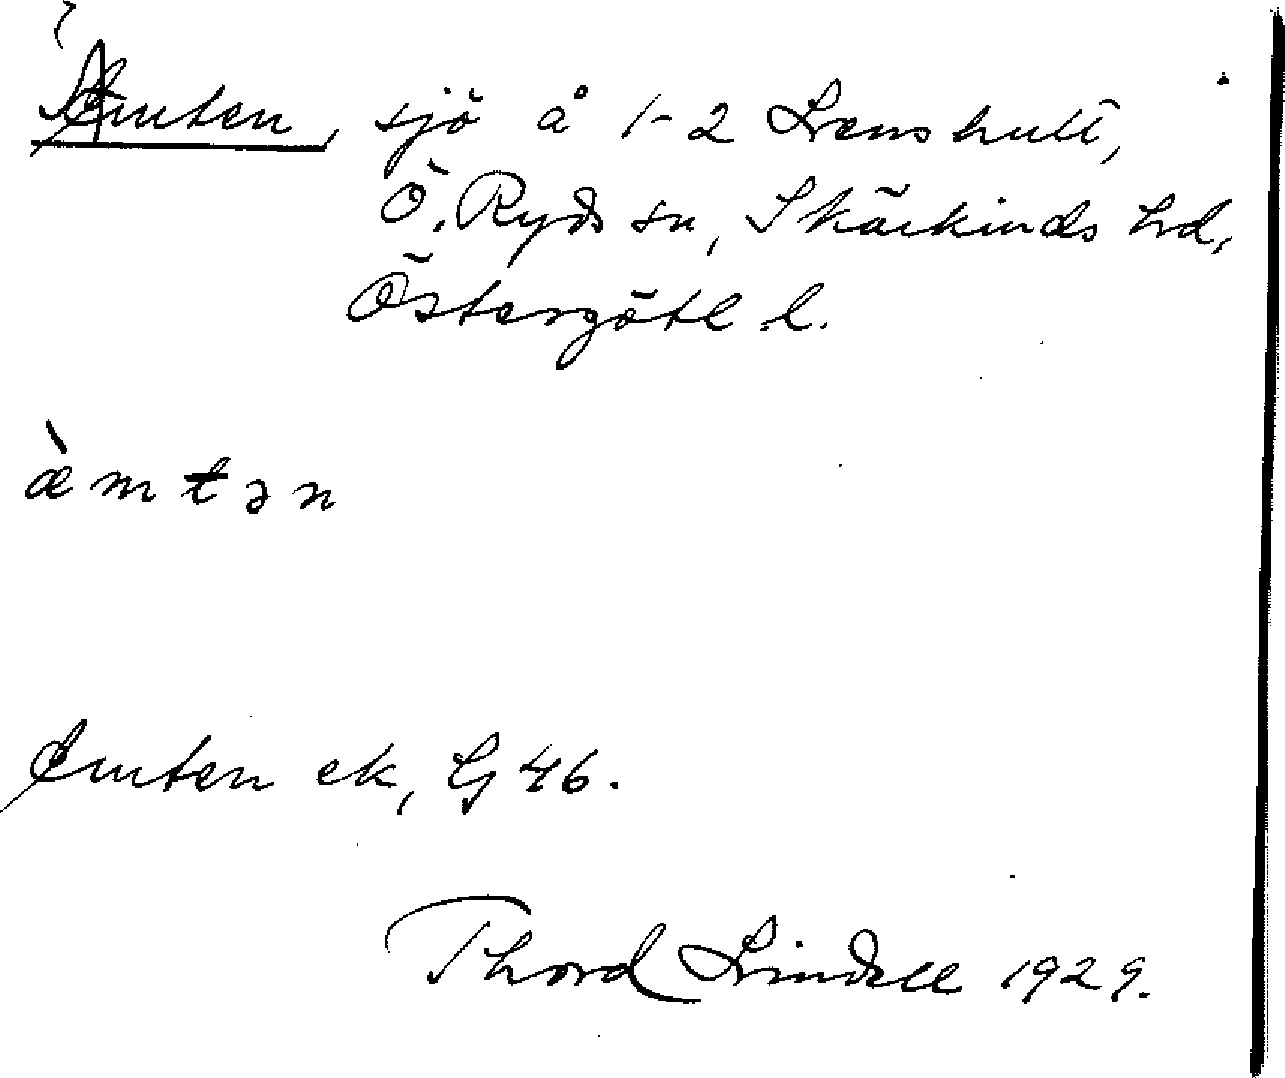 Ämten, sjö å 1-2 Lämshult,
Ö. Ryds sn, Skärkinds hd,
Östergötl l.
æ̀mtən
Emten ek, G 46.
Thord Lindell 1929.